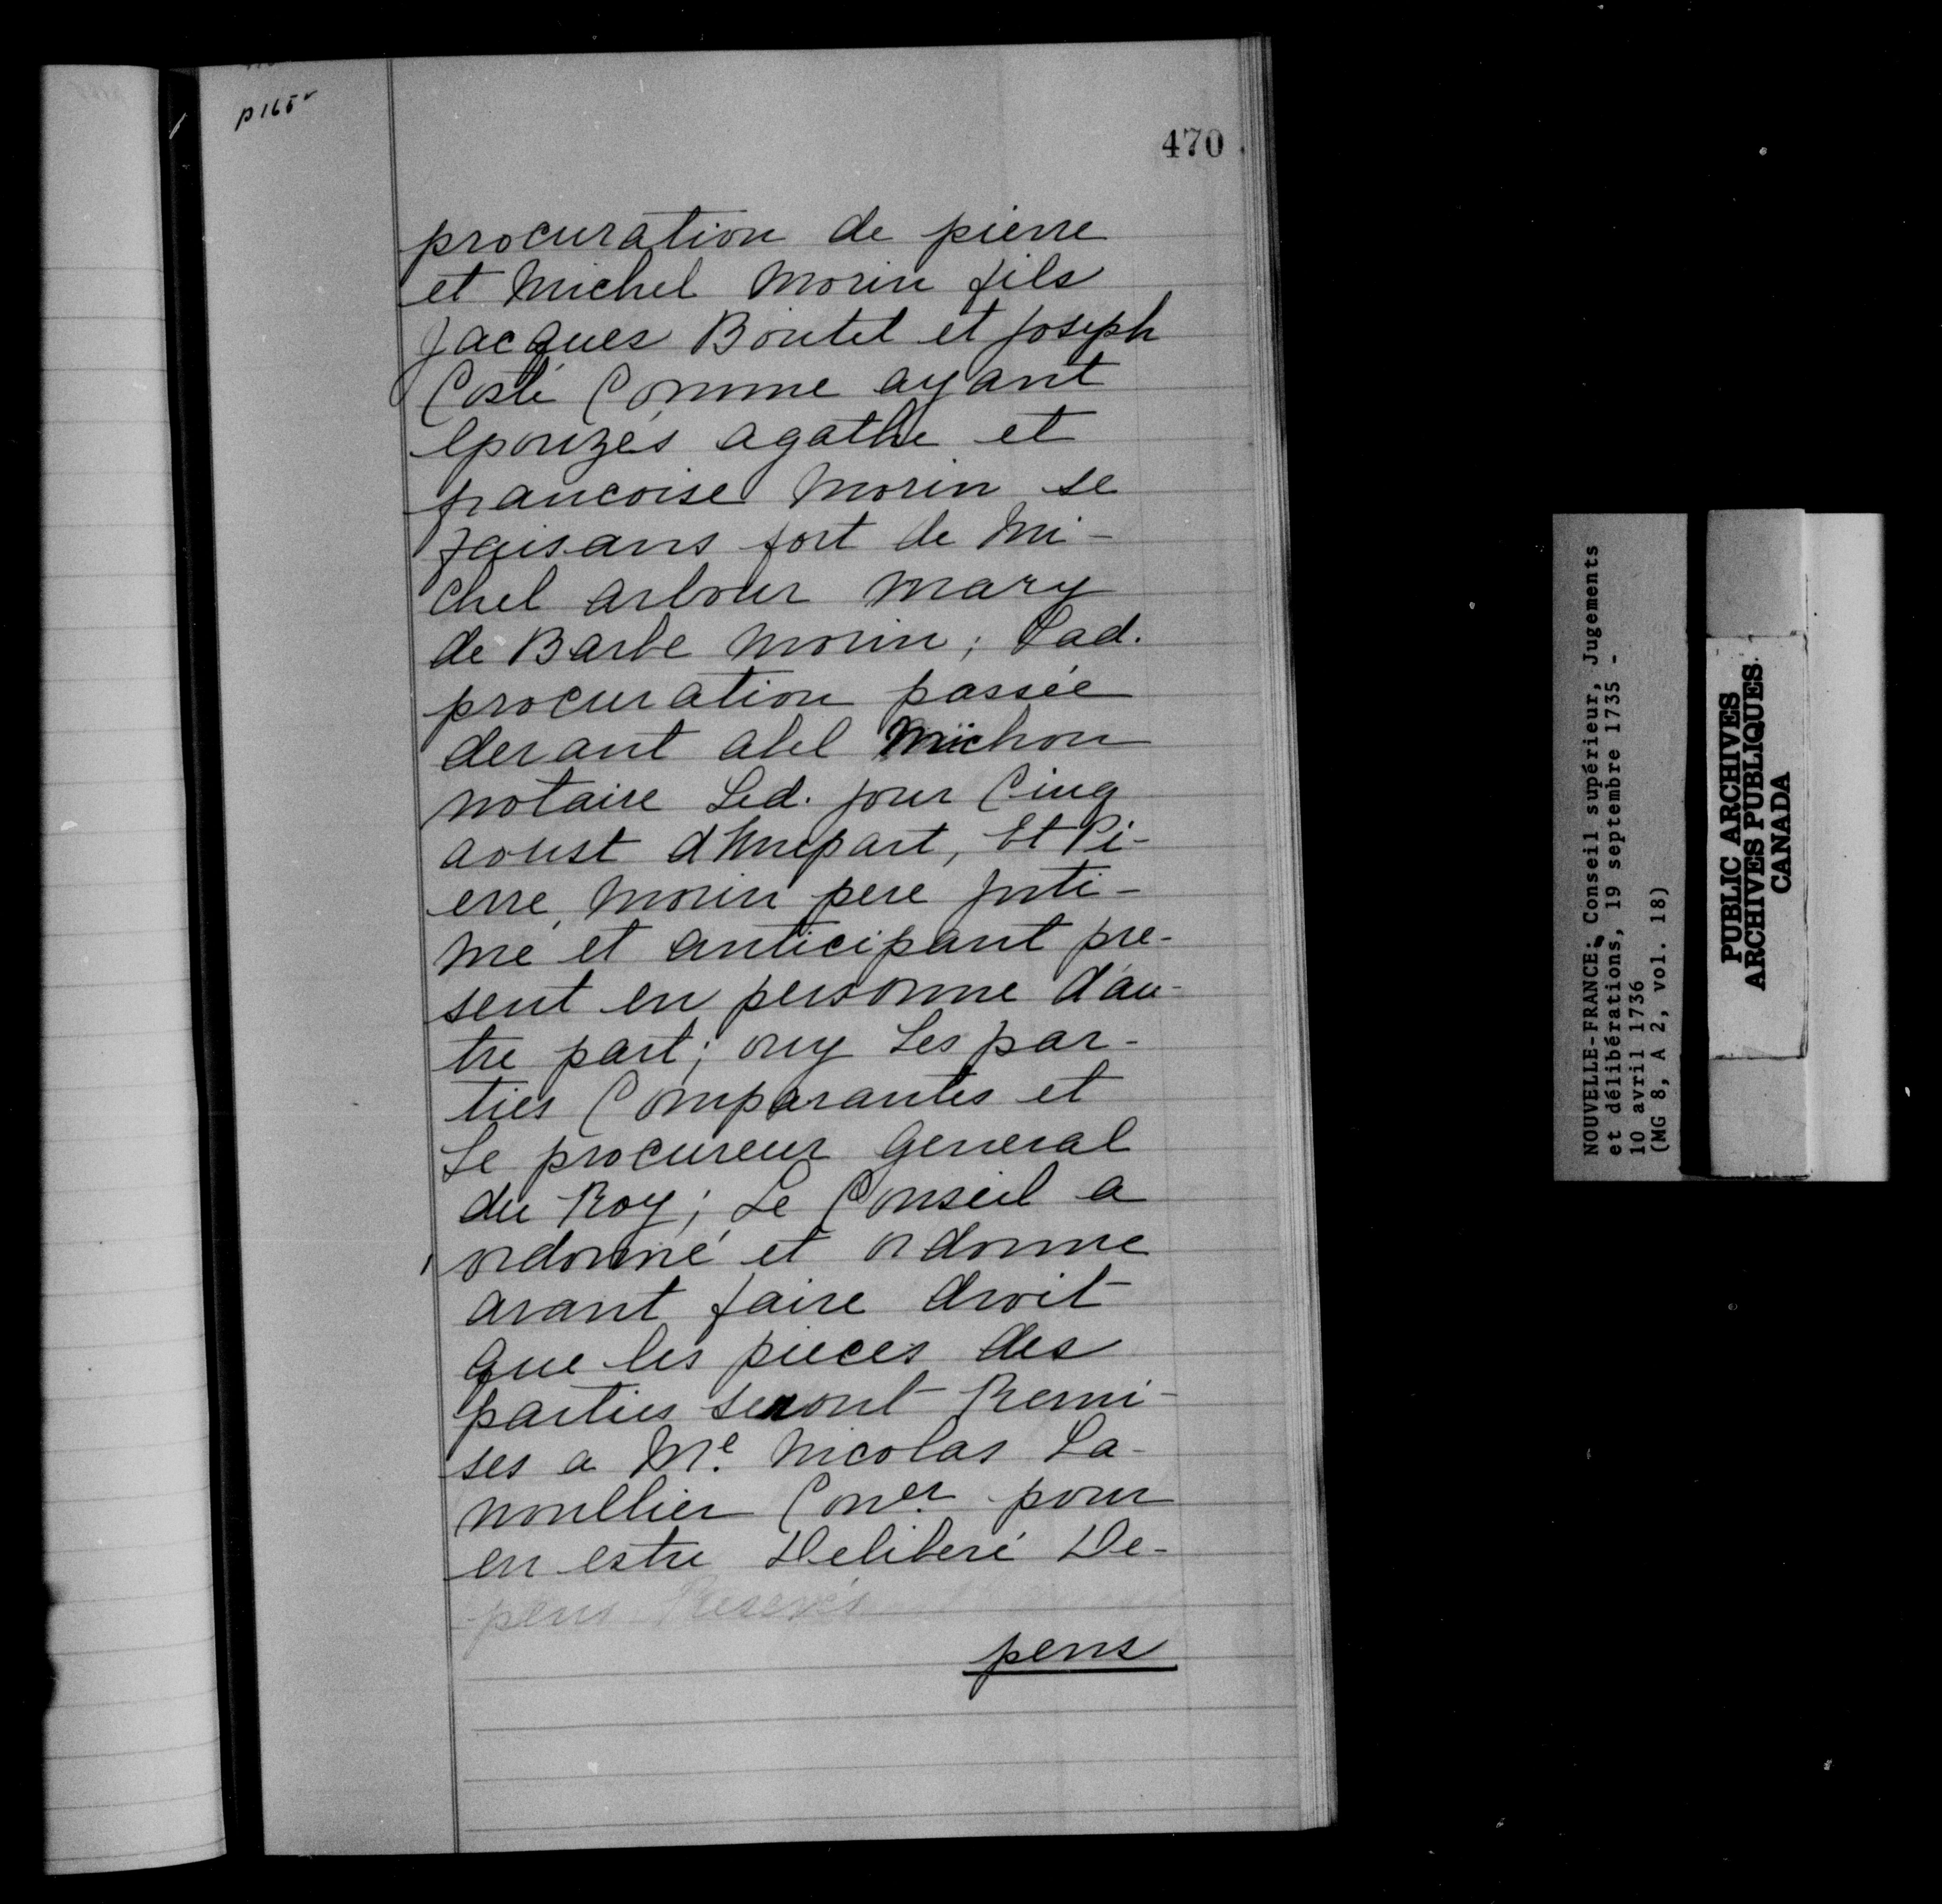 p 165 v
470
procuration de pierre
et Michel Morin fils
Jacques Boutet et Joseph
Costé Comme ayant
epouzés agathe et
francoise Morin se
faisans fort de Mi-
chel arbour mary
de Barbe Morin; Lad.
procuration passée
devant abel Michon
notaire Led. jour Cinq
aoust d'Unepart, Et Pi-
erre Morin pere Inti-
mé et anticipant pre-
sent en personne d'au-
tre part; ouy Les par-
ties Comparantes et
Le procureur General
du Roy; Le Conseil a
ordonné et ordonne
avant faire droit
que les pieces des
parties seront Remi-
ses a Me. Nicolas La-
noullier Coner. pour
en estre Deliberé De-
pens Reservés
pens
NOUVELLE-FRANCE: Conseil supérieur, Jugements
et délibérations, 19 septembre 1735 -
10 avril 1736
(MG 8, A 2, vol. 18)
PUBLIC ARCHIVES
ARCHIVES PUBLIQUES
CANADA